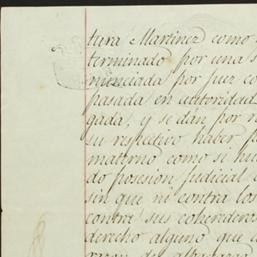 tura Martinez como
terminado por una s
nunciada por juez co
pasada en autoridad
gada, y se dán por r
su respectivo haber p
materno como si hu
do posesion judicial
sin que ni contra los
contra sus coherederos
derecho alguno que
razon de